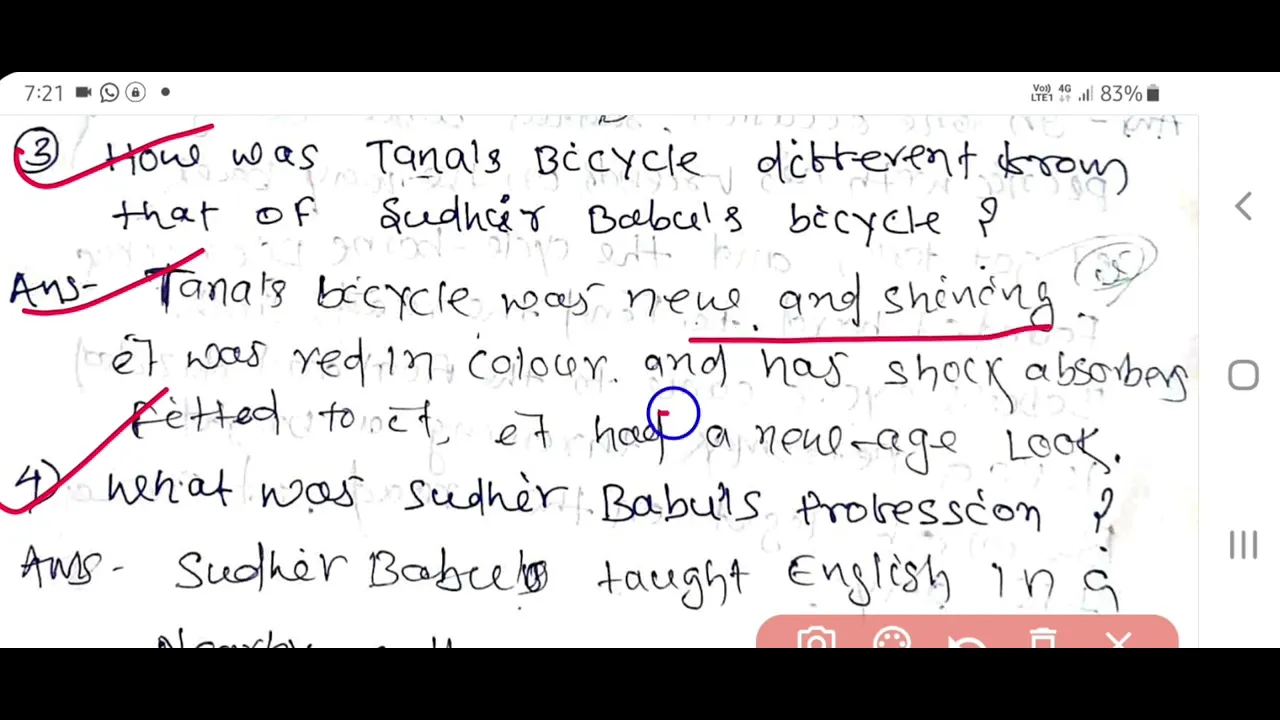 7:21 Vo)) LTE1 4G 83%
3 How was Tana's Bicycle different from
that of Sudhir Babu's bicycle ?
Ans- Tana's bicycle was new and shining
it was red in colour. and has shock absorbers
fitted to it, it had a new-age Look.
4) What was Sudhir Babu's Profession ?
Ans - Sudhir Babu taught English in a
Nearby